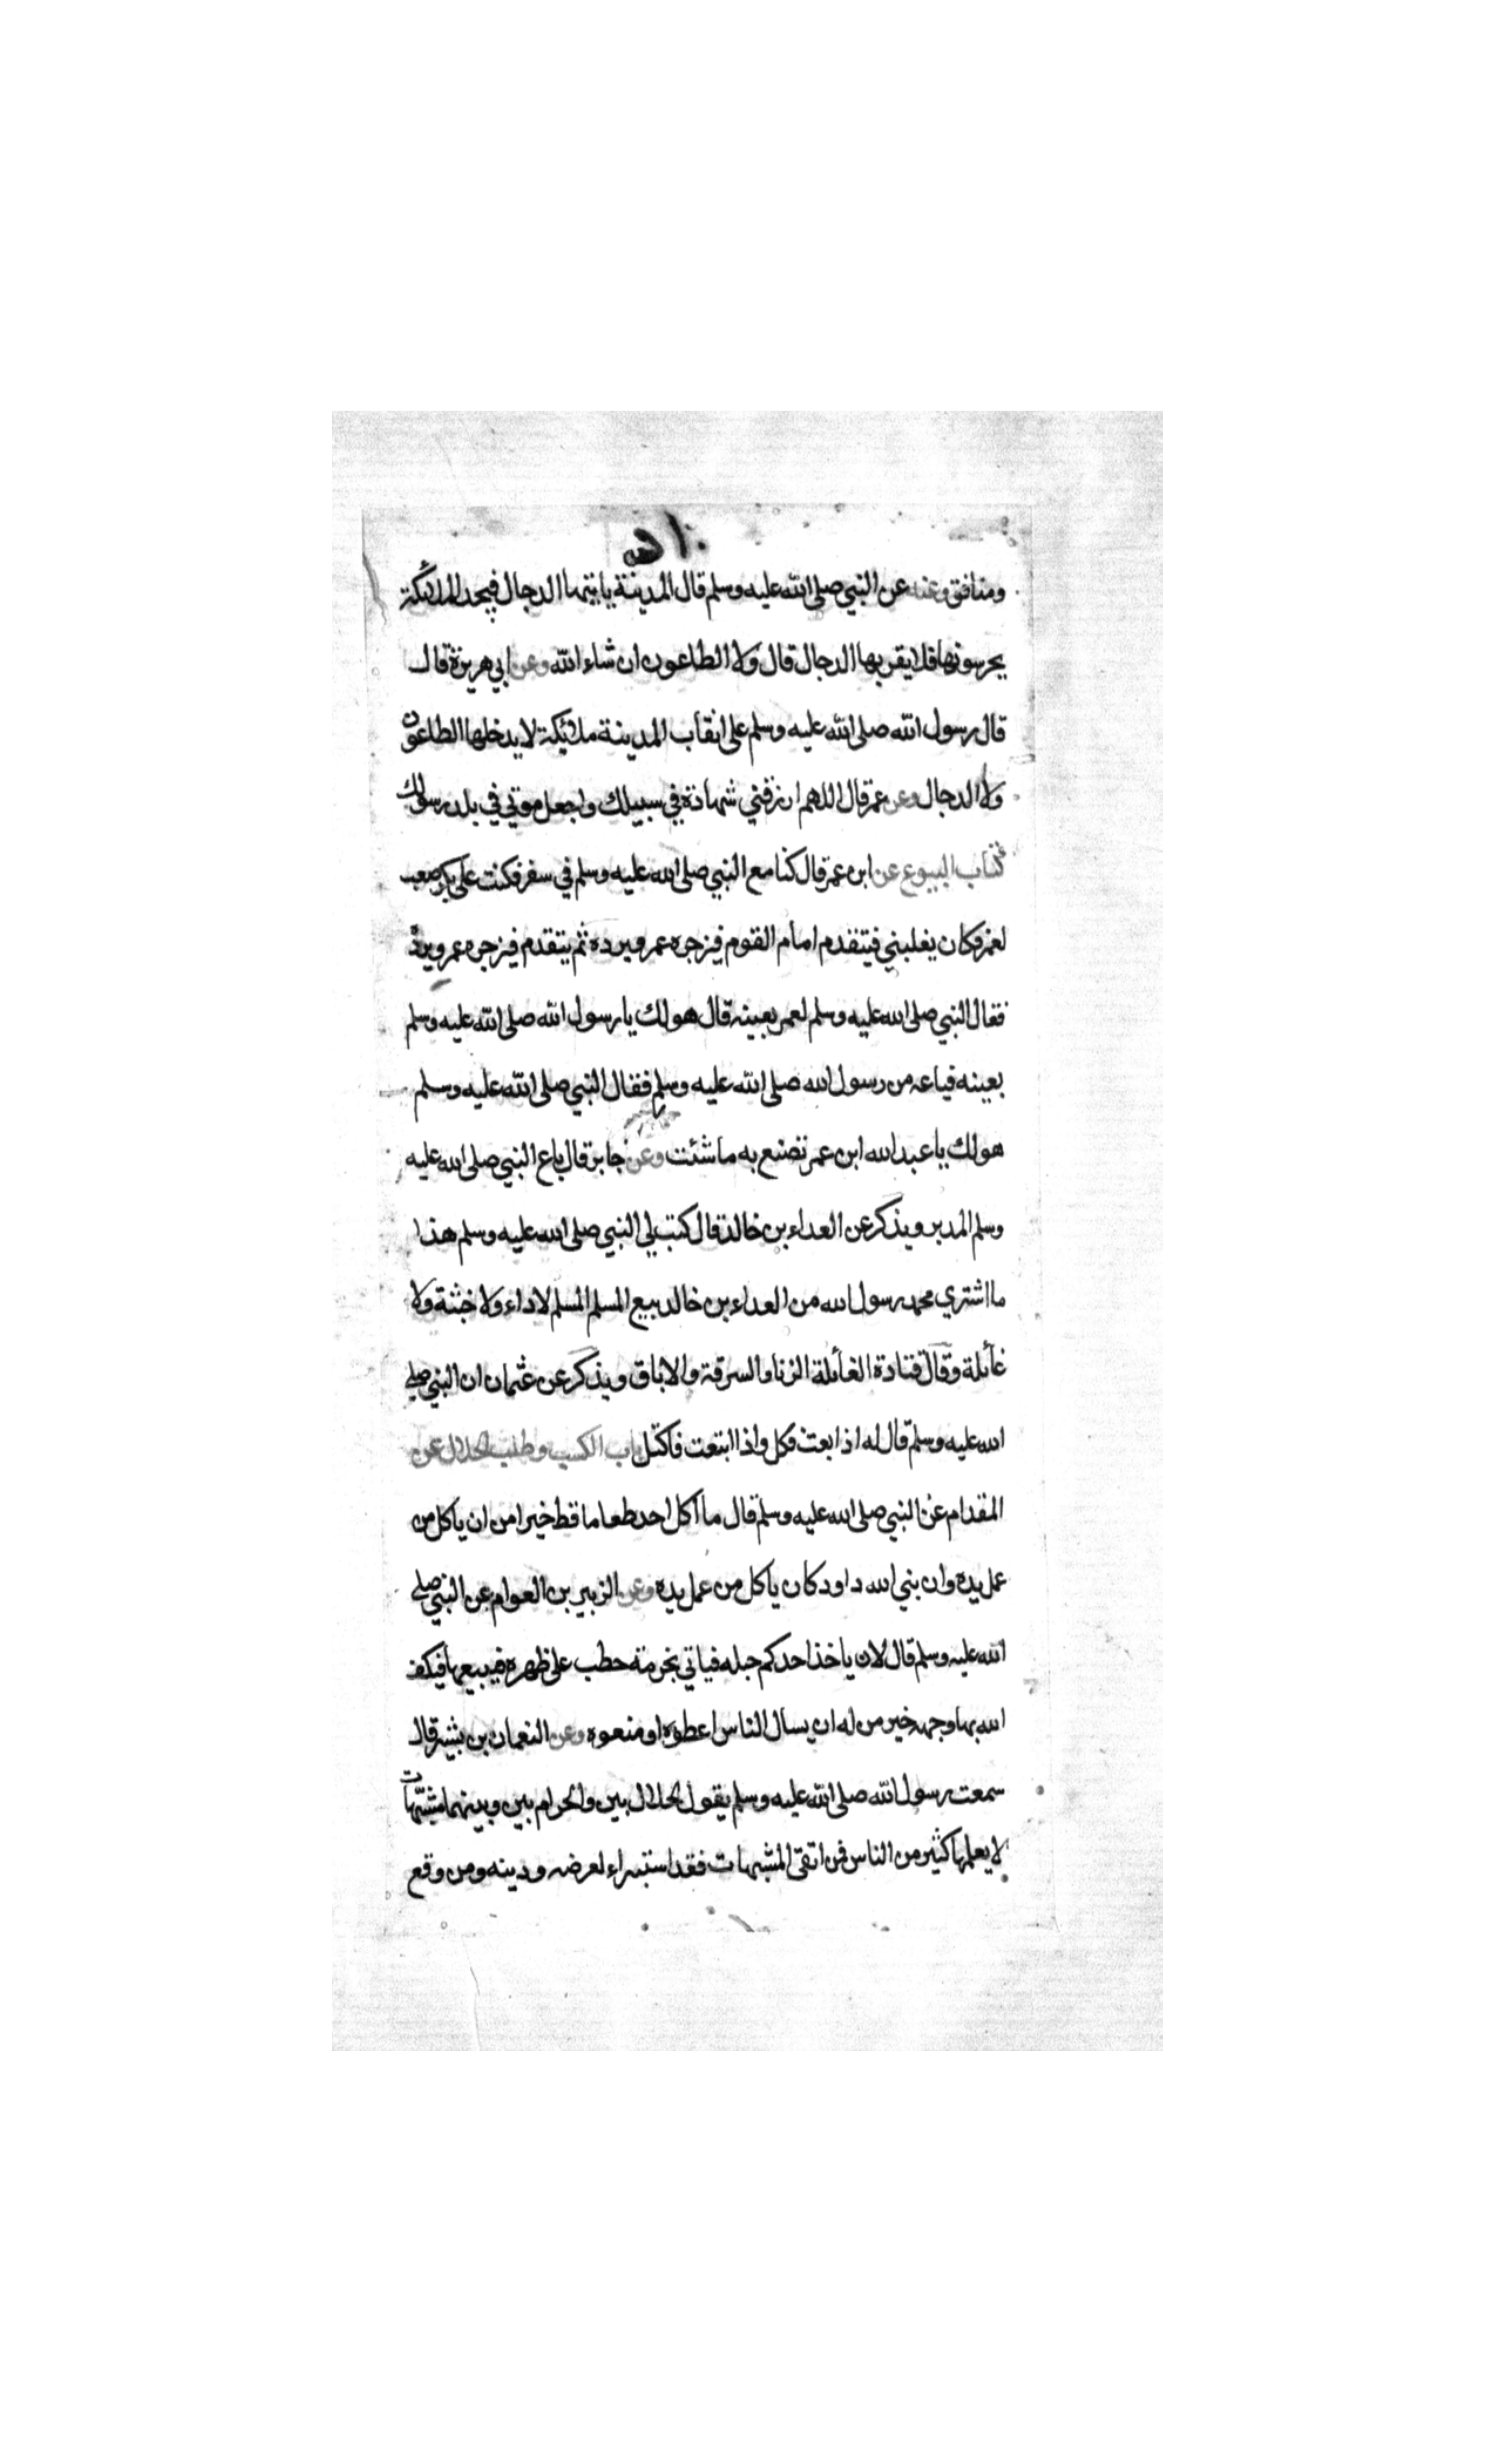 ومنافق وعنه عن النبي صلى الله عليه وسلم قال المدينة ياتيها الدجال فيجد الملائكة
يحرسونها فلا يقربها الدجال قال ولا الطاعون ان شاء الله وعن ابي هريرة قال
قال رسول الله صلى الله عليه وسلم على انقاب المدينة ملائكة لا يدخلها الطاعون
ولا الدجال وعن عمر قال اللهم ارزقني شهادة في سبيلك واجعل موتي في بلد رسولك
كتاب البيوع عن ابن عمر قال كنا مع النبي صلى الله عليه وسلم في سفر فكنت على بكر صعب
لعمر فكان يغلبني فيتقدم امام القوم فيزجره عمر ويرده ثم يتقدم فيزجره عمر ويرده
فقال النبي صلى الله عليه وسلم لعمر بعينه قال هو لك يا رسول الله صلى الله عليه وسلم
بعينه فباعه من رسول الله صلى الله عليه وسلم فقال النبي صلى الله عليه وسلم
هو لك يا عبد الله ابن عمر تصنع به ما شئت وعن جابر قال باع النبي صلى الله عليه
وسلم المدبر ويذكر عن العداء بن خالد قال كتب لي النبي صلى الله عليه وسلم هذا
ما اشتري محمد رسول الله من العداء بن خالد بيع المسلم المسلم لا داء ولا خبثة ولا
غائلة وقال قتادة الغائلة الزنا والسرقة والاباق ويذكر عن عثمان ان النبي صلى
الله عليه وسلم قال له اذا بعت فكل واذا ابتعت فاكتل باب الكسب وطلب الحلال عن
المقدام عن النبي صلى الله عليه وسلم قال ما اكل احد طعاما قط خيرا من ان ياكل من
عمل يده وان نبي الله داود كان ياكل من عمل يده وعن الزبير بن العوام عن النبي صلى
الله عليه وسلم قال لان ياخذ احدكم حبله فياتي بحزمة حطب على ظهره فيبيعها فيكف
الله بها وجهه خير من له ان يسال الناس اعطوه او منعوه وعن النعمان بن بشير قال
سمعت رسول الله صلى الله عليه وسلم يقول الحلال بين والحرام بين وبينهما مشتبهات
لا يعلمها كثير من الناس فمن اتقى المشبهات فقد استبراء لعرضه ودينه ومن وقع